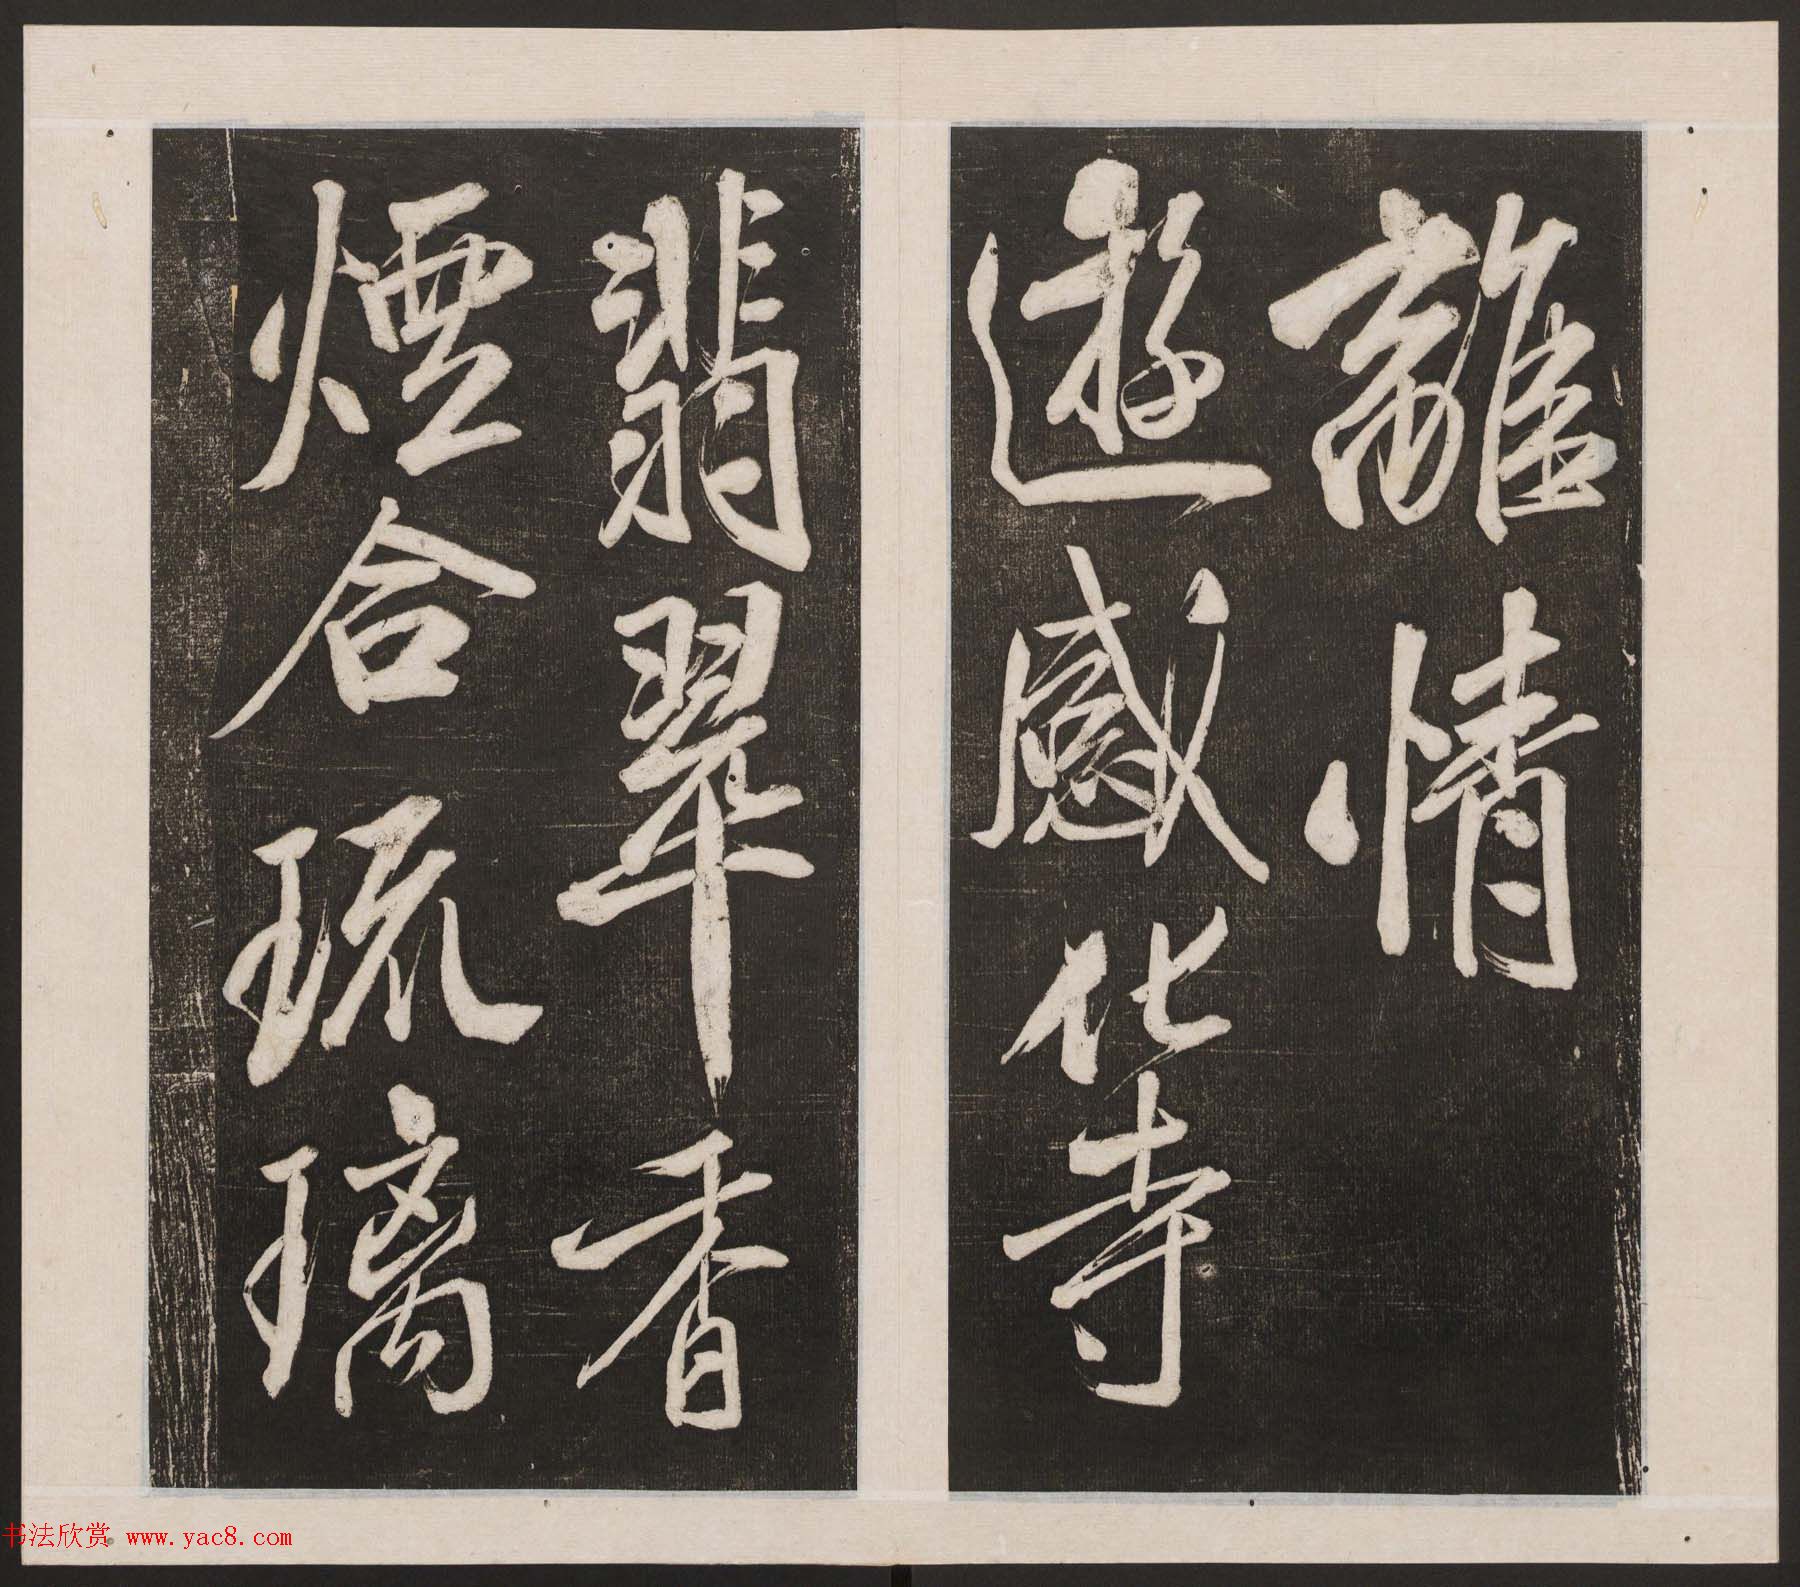 離情
遊感化寺
翡翠香
煙合琉
璃
书法欣赏 www.yac8.com